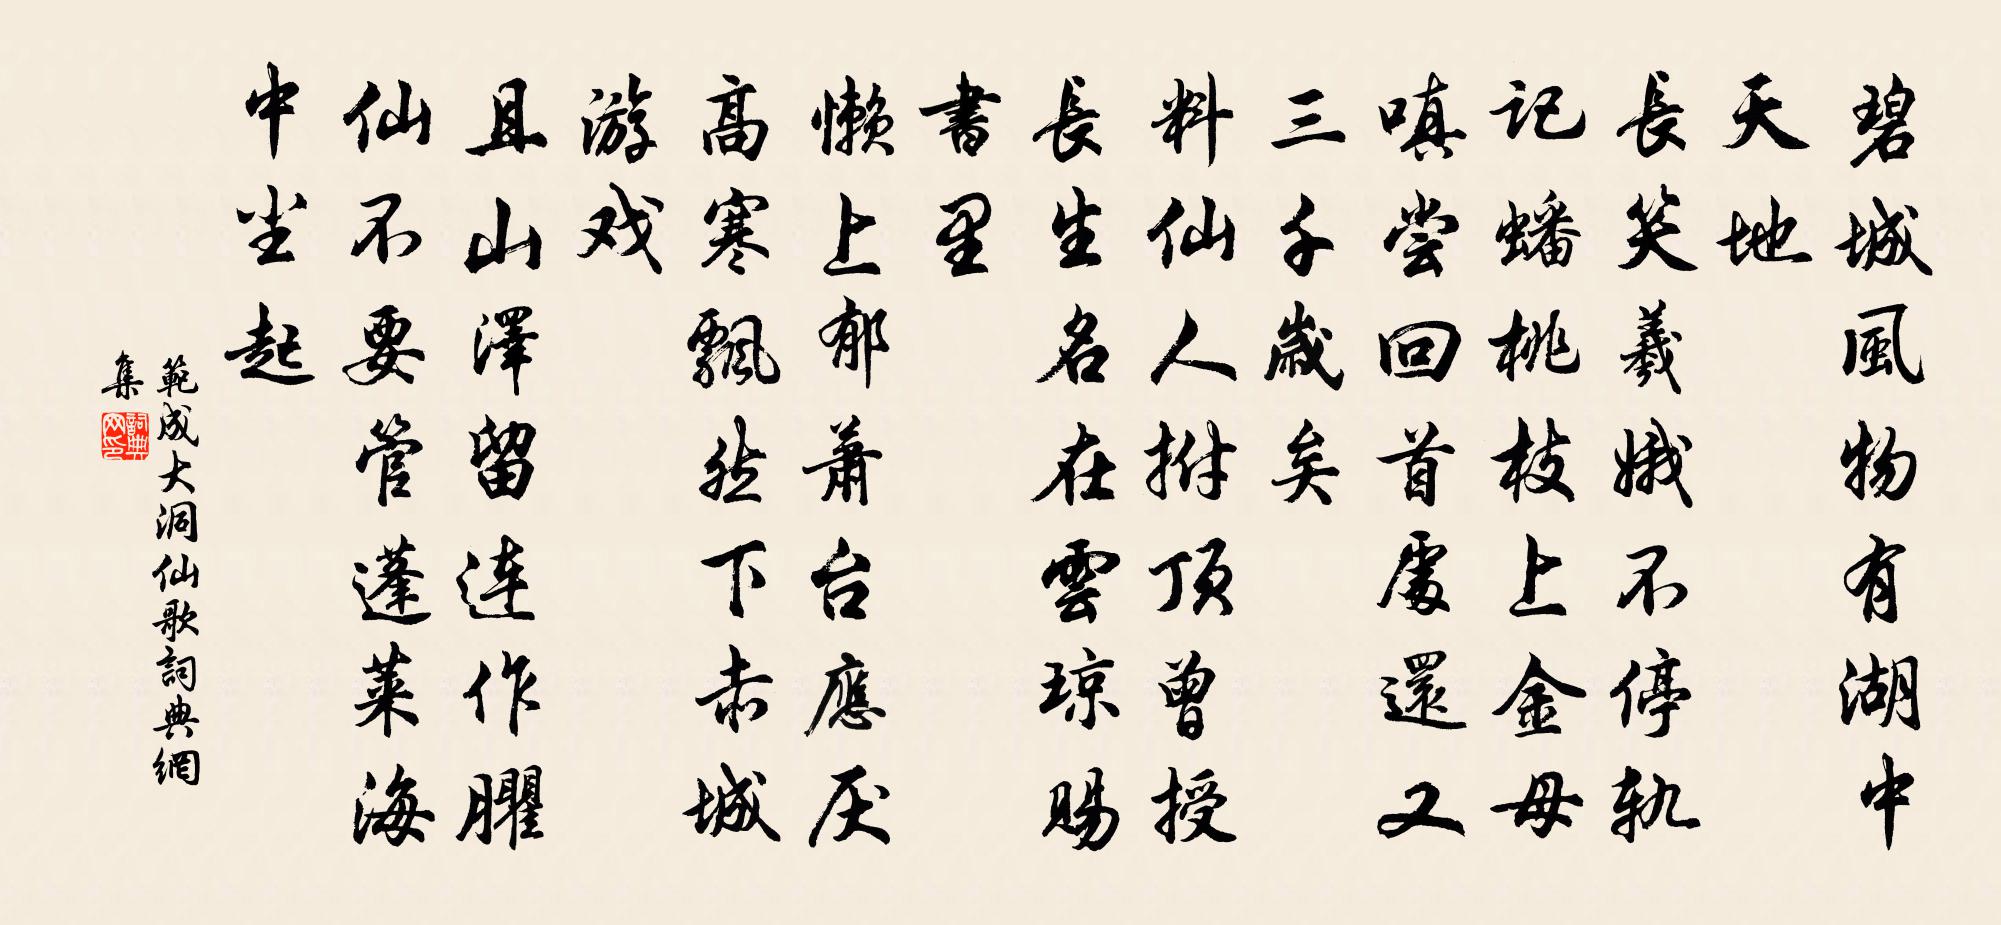 碧城風物有湖中
天地
長笑羲娥不停軌
記蟠桃枝上金母
嗔嘗回首處還又
三千歲矣
料仙人拊頂曾授
長生名在雲琼賜
書里
懶上郁蕭台應厌
高寒飄然下赤城
游戏
且山澤留連作臞
仙不要管蓬莱海
中尘起
範成大洞仙歌詞典網
集
詞典网印